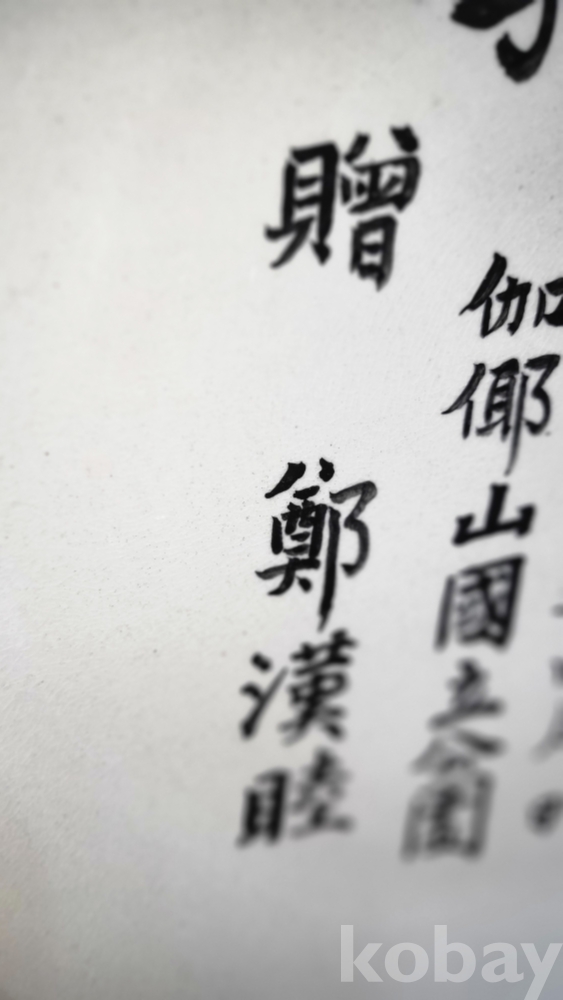 伽倻山國立公園
贈 鄭漢睦
kobay